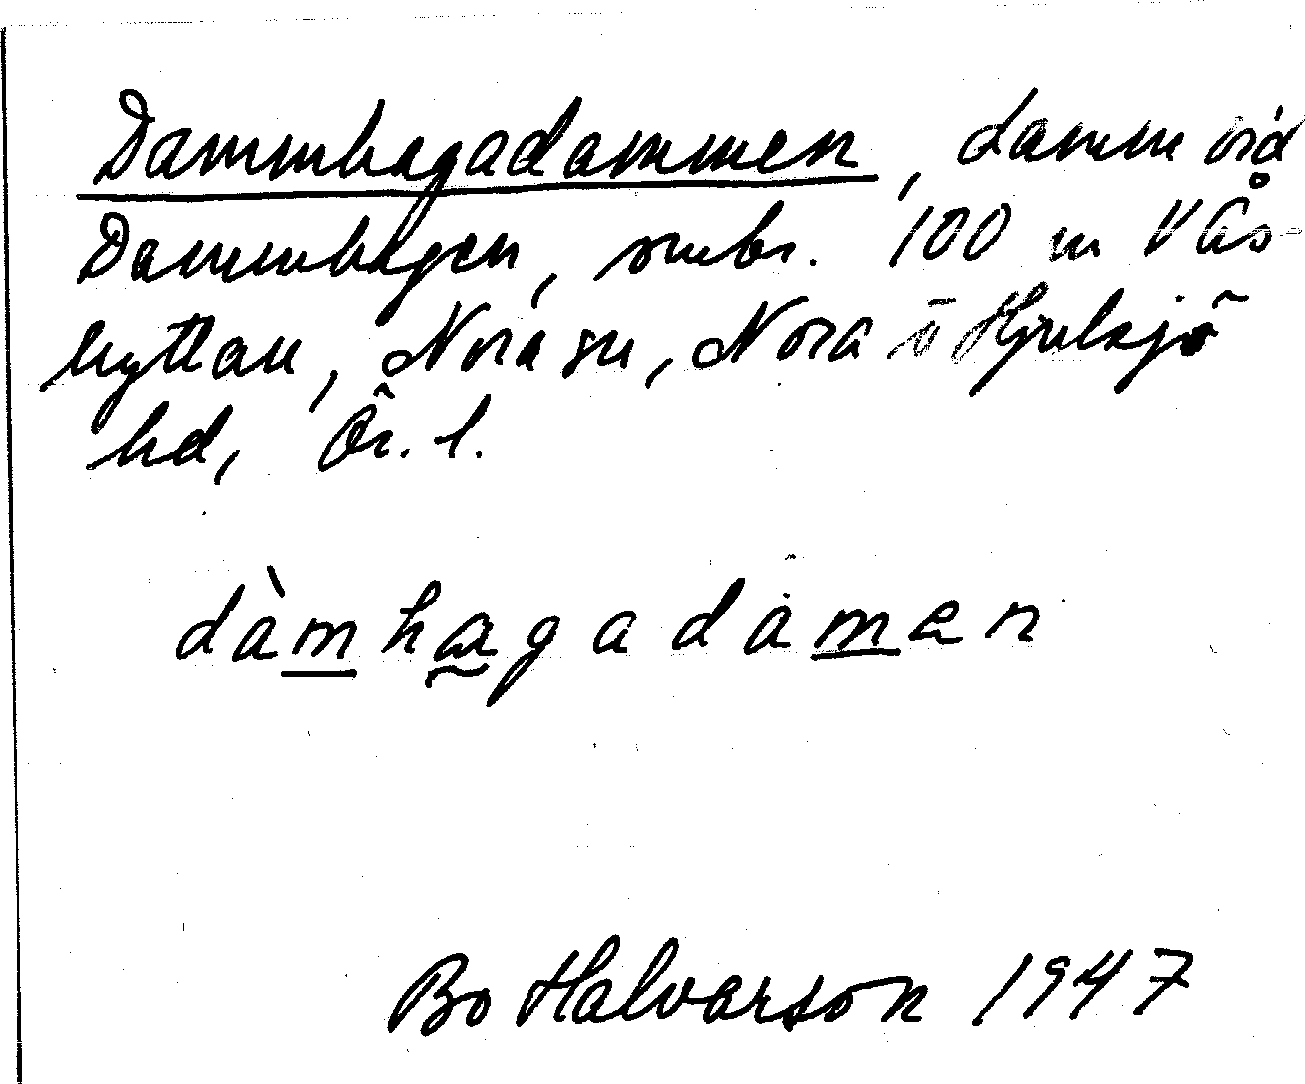 Dammhagadammen, damm vid
Dammhagen, smbr. 100 m V Ås-
hyttan, Nora sn, Nora o Hjulsjö
hd, Ör. l.
dàmhagadàmen
Bo Halvarson 1947